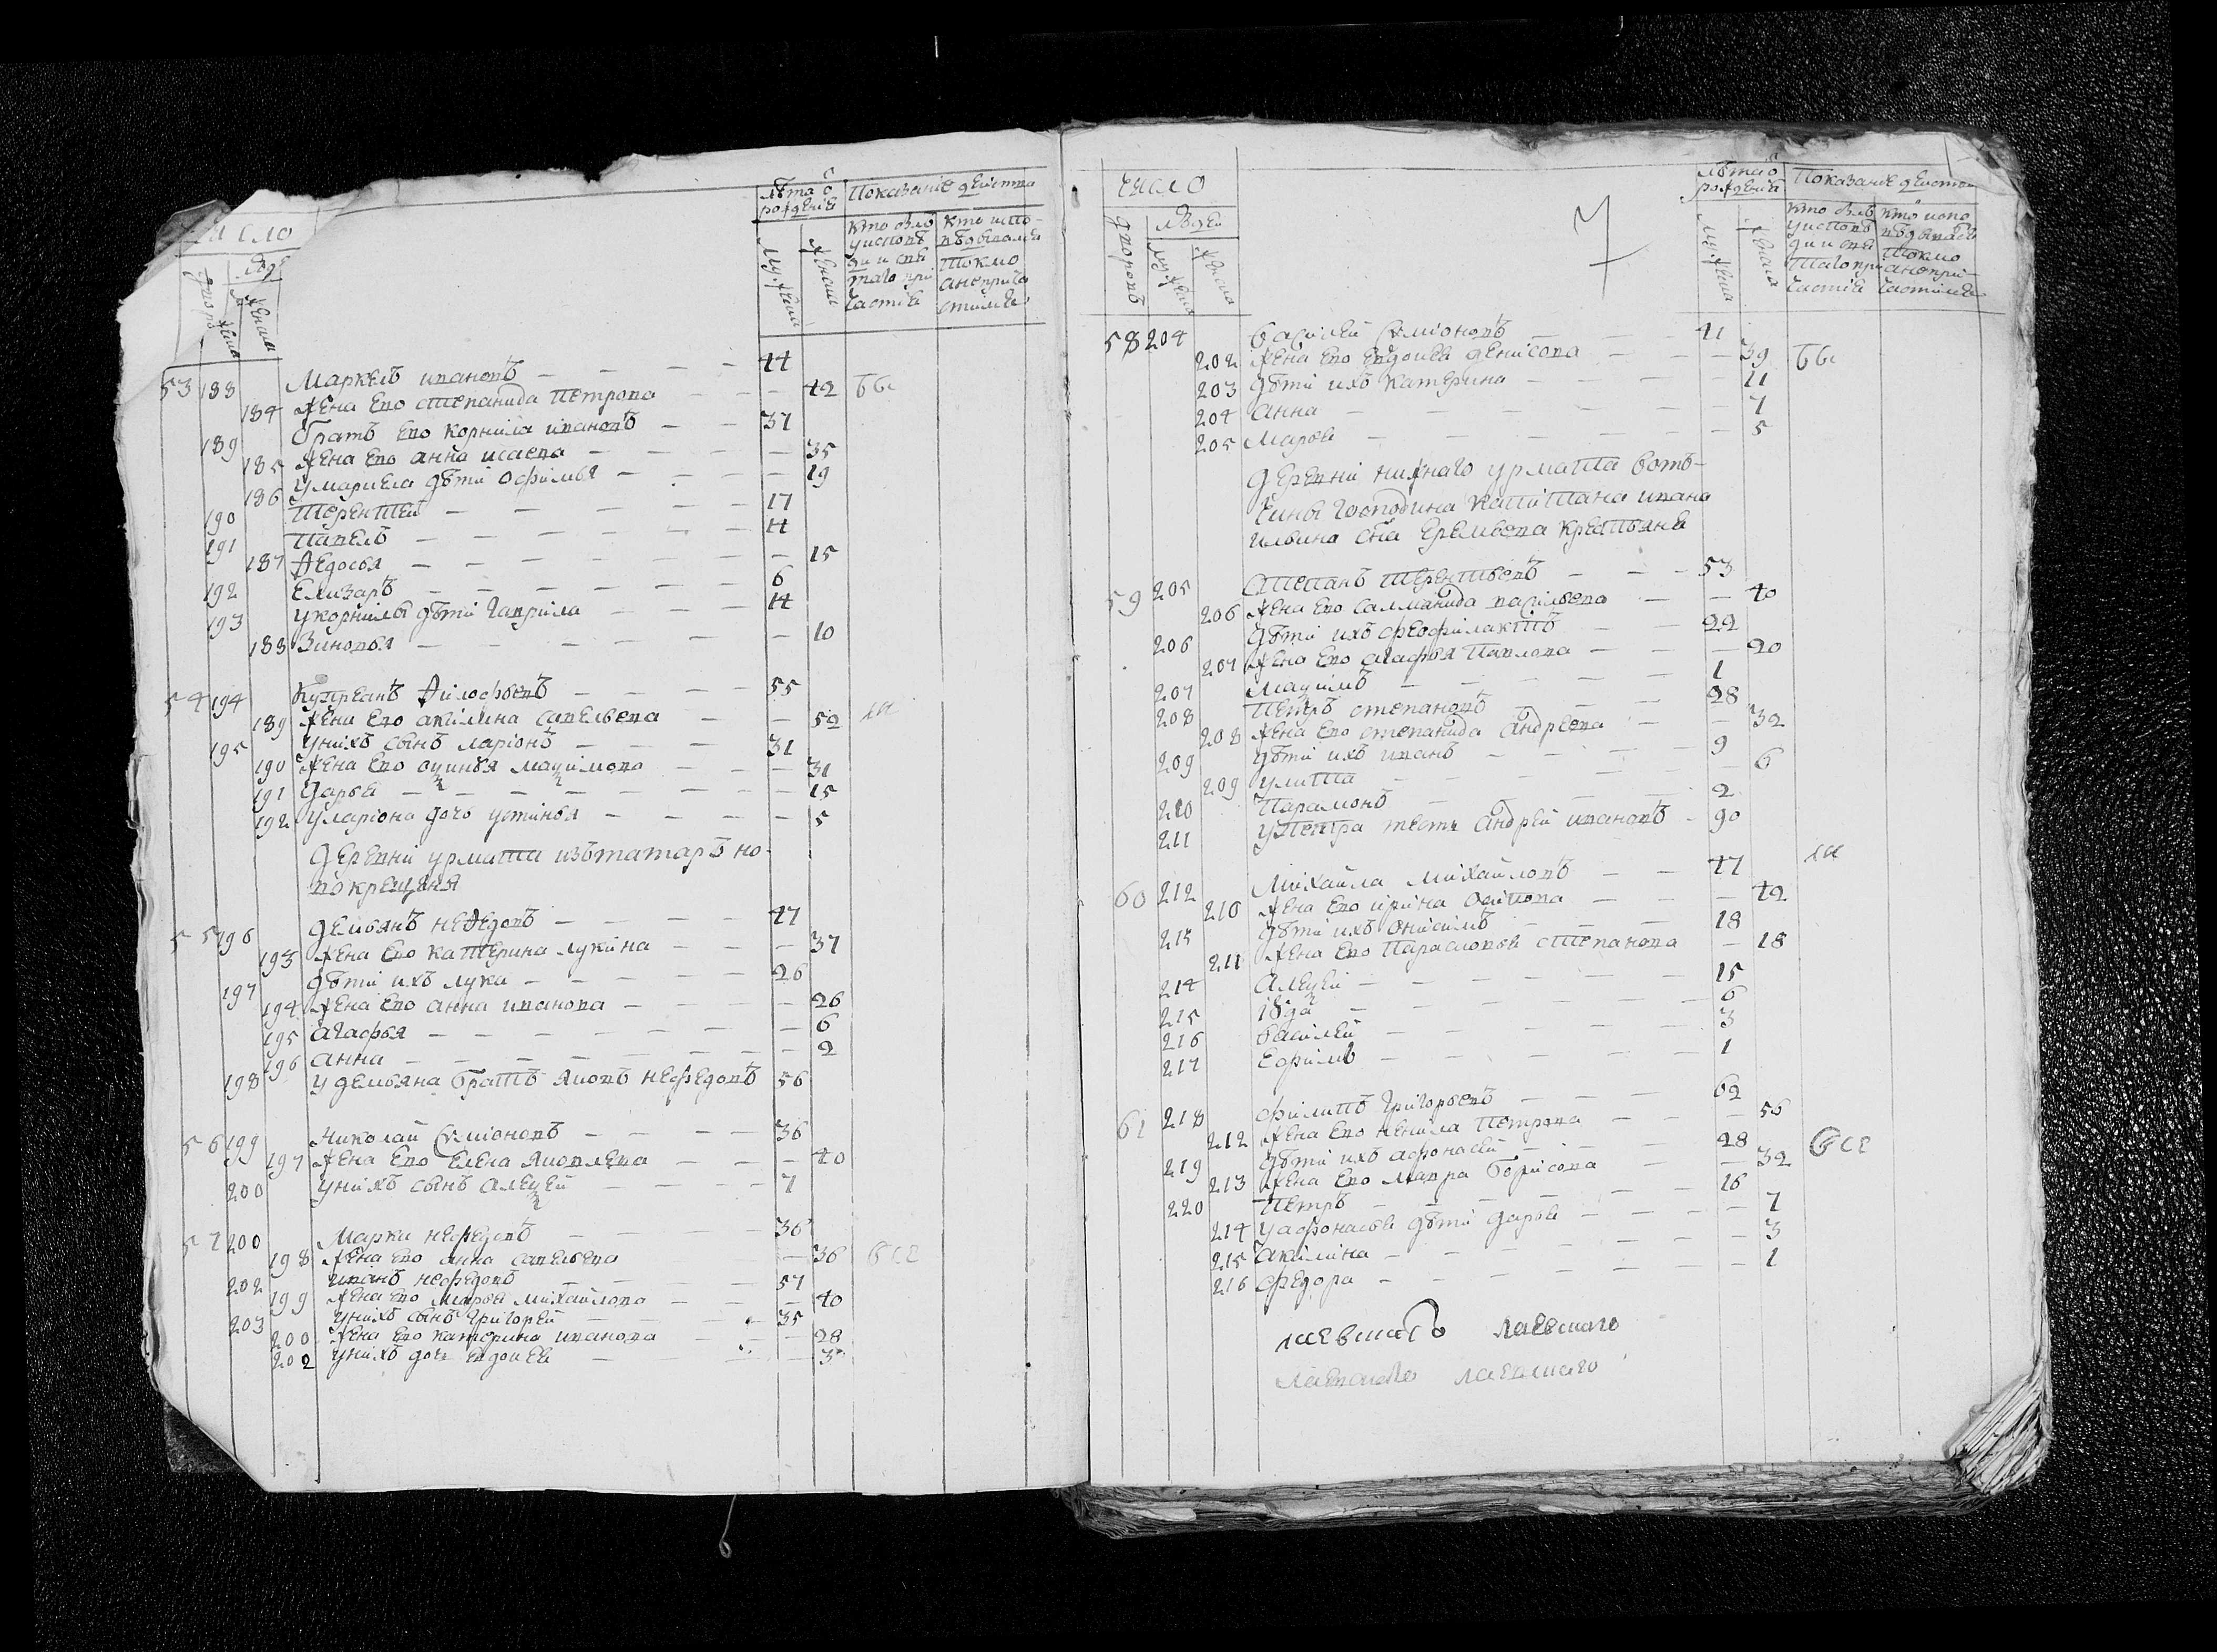 число
людей
дворовъ
мужеска
женска
лѣта ѿ рожденія
Показаніе действа
мужеска
женска
кто былъ у исповѣди и святаго причастія
кто исповѣдывался токмо а не причастился
53 188 Маркелъ ивановъ — — — — 44
184 жена ево степанида петрова — — — 42 бы
189 братъ ево корнила ивановъ — — 37
185 жена ево анна исаева — — — — 35
186 у маркела дѣти офимья — — — 19
190 терентей — — — — — 17
191 павелъ — — — — — 14
187 ѳедосья — — — — — 15
192 Елизаръ — — — — — 6
193 у корнилы дѣти гаврила — — — 14
188 Зиновья — — — — — 10
54 194 Купреанъ ѳилофьевъ — — — — 55
189 жена ево акилина савельева — — 52
195 у нихъ сынъ ларіонъ — — — 31
190 жена ево оксинья максимова — — — 31
191 дарья — — — — — — — 15
192 у ларіона дочь устинья — — — — 5
деревни урмата изъ татаръ но-
вокрещеня
55 196 демьянъ неѳедовъ — — — — 47
193 жена ево катерина лукина — — — 37
197 дѣти ихъ лука — — — — 26
194 жена ево анна иванова — — — — 26
195 агафья — — — — — — 6
196 анна — — — — — — 2
198 у демьяна братъ яковъ нефедовъ 56
56 199 Николай симіоновъ — — — — 36
197 жена ево Елена яковлева — — — 40
200 у нихъ сынъ алексей — — — — 7
57 200 Марки нефедовъ — — — — 36
198 жена ево анна савельева — 36 все
202 иванъ нефедовъ — — — — 57
199 жена ево марья михайлова — — — 40
203 у нихъ сынъ григорей — — — 35
200 жена ево катерина иванова — — — 28
202 у нихъ дочь евдокея — — — 3
число
людей
дворовъ
мужеска
женска
7
лѣта ѿ рожденія
Показаніе действа
мужеска
женска
кто былъ у исповѣди и святаго причастія
кто исповѣдывался токмо а не причастился
58 204 василей симіоновъ — — — 41
202 жена ево евдокея денисова — — — 39 бы
203 дѣти ихъ катерина — — — — 11
204 анна — — — — — 7
205 марья — — — — — 5
деревни нижнаго урмата вот-
чины господина капитана ивана
ильина сна еремѣева крестьяне
59 205 степанъ терентьевъ — — — 53
206 жена ево саламанида васильева — — 40
206 дѣти ихъ феофилактъ — — 22
207 жена ево агафья павлова — — — 20
207 максимъ — — — — 1
208 петръ степановъ — — — — 28
208 жена ево степанида андреева — — 32
209 дѣти ихъ иванъ — — — — 9
209 улита — — — — — 6
210 парамонъ — — — — — 2
211 у петра тесть андрей ивановъ — 90
60 212 Михайла михайловъ — — 47
210 жена ево ирина осипова — — — 42
213 дѣти ихъ онисимъ — — — — 18
211 жена ево парасковья степанова — 18
214 алексей — — — — — 15
215 іюда — — — — — 6
216 василей — — — — — 3
217 ефимъ — — — — — 1
61 218 филипъ григорьевъ — — — — 62
212 жена ево ненила петрова — — — 56
219 дѣти ихъ афонасей — — — 28 все
213 жена ево мавра борисова — — 32
220 петръ — — — — — 16
214 у афонасья дѣти дарья — — — — 7
215 акилина — — — — — 3
216 федора — — — — — 1